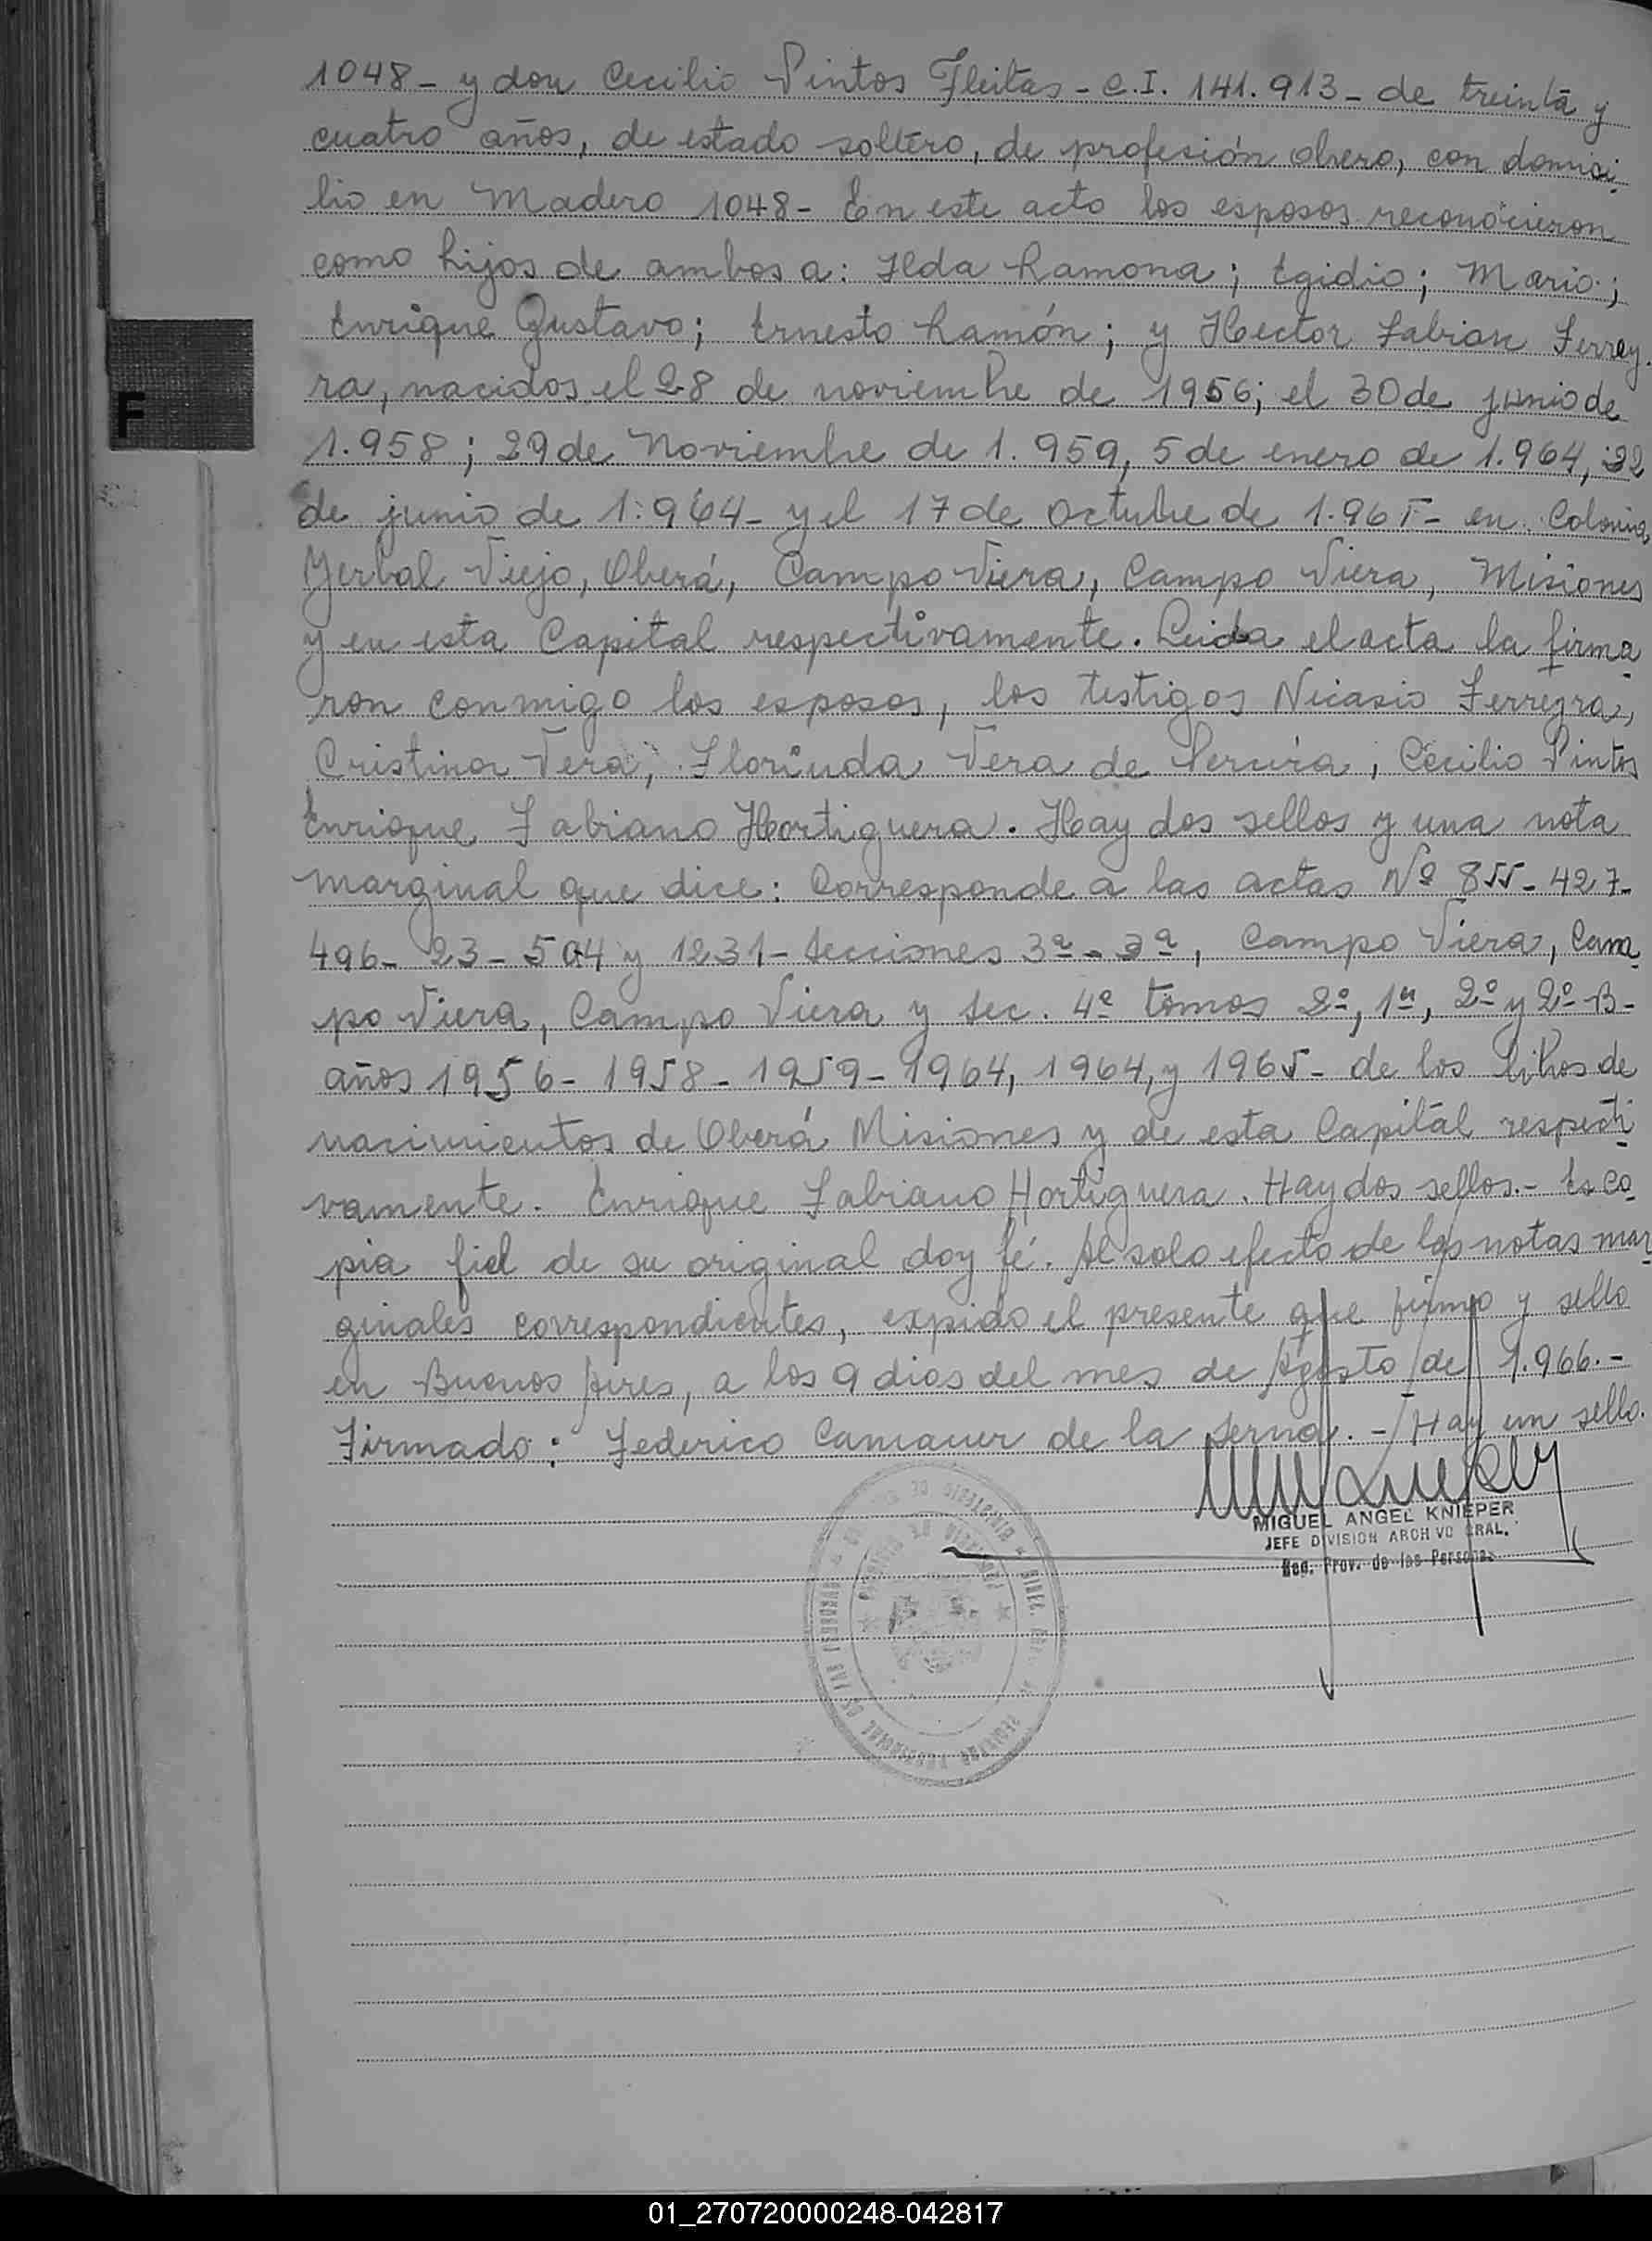 1048- y don Cecilio Pintos Fleitas - C.I. 141.913 - de treinta y
cuatro años, de estado soltero, de profesión obrero, con domici-
lio en Madero 1048- En este acto los esposos reconocieron
como hijos de ambos a: Ilda Ramona; Egidio; Mario;
Enrique Gustavo; Ernesto Ramón; y Hector Fabian Ferrey-
ra, nacidos el 28 de noviembre de 1956; el 30 de junio de
1.958; 29 de Noviembre de 1.959, 5 de enero de 1.964, 22
de junio de 1.964- y el 17 de octubre de 1.965- en Colonia
Yerbal Viejo, Oberá, Campo Viera, Campo Viera, Misiones
y en esta Capital respectivamente. Leida el acta la firma
ron conmigo los esposos, los testigos Nicasio Ferreyra,
Cristina Vera, Florinda Vera de Pereira, Cecilio Pintos
Enrique Fabiano Hortiguera. Hay dos sellos y una nota
marginal que dice: Corresponde a las actas Nº 855- 427-
496- 23- 504 y 1231- secciones 3ª - 3ª, Campo Viera, Cam
po Viera, Campo Viera y sec. 4ª tomos 2º, 1º, 2º y 2º B-
años 1956- 1958- 1959- 1964, 1964, y 1965- de los libros de
nacimientos de Oberá Misiones y de esta Capital respecti
vamente. Enrique Fabiano Hortiguera. Hay dos sellos.- Es co
pia fiel de su original doy fé. Al solo efecto de las notas mar
ginales correspondientes, expido el presente que firmo y sello
en Buenos Aires, a los 9 dias del mes de Agosto de 1.966.-
Firmado: Federico Camauer de la Serna. - Hay un sello.
MIGUEL ANGEL KNIEPER
JEFE DIVISION ARCHIVO GRAL.
Reg. Prov. de las Personas
F
01_270720000248-042817